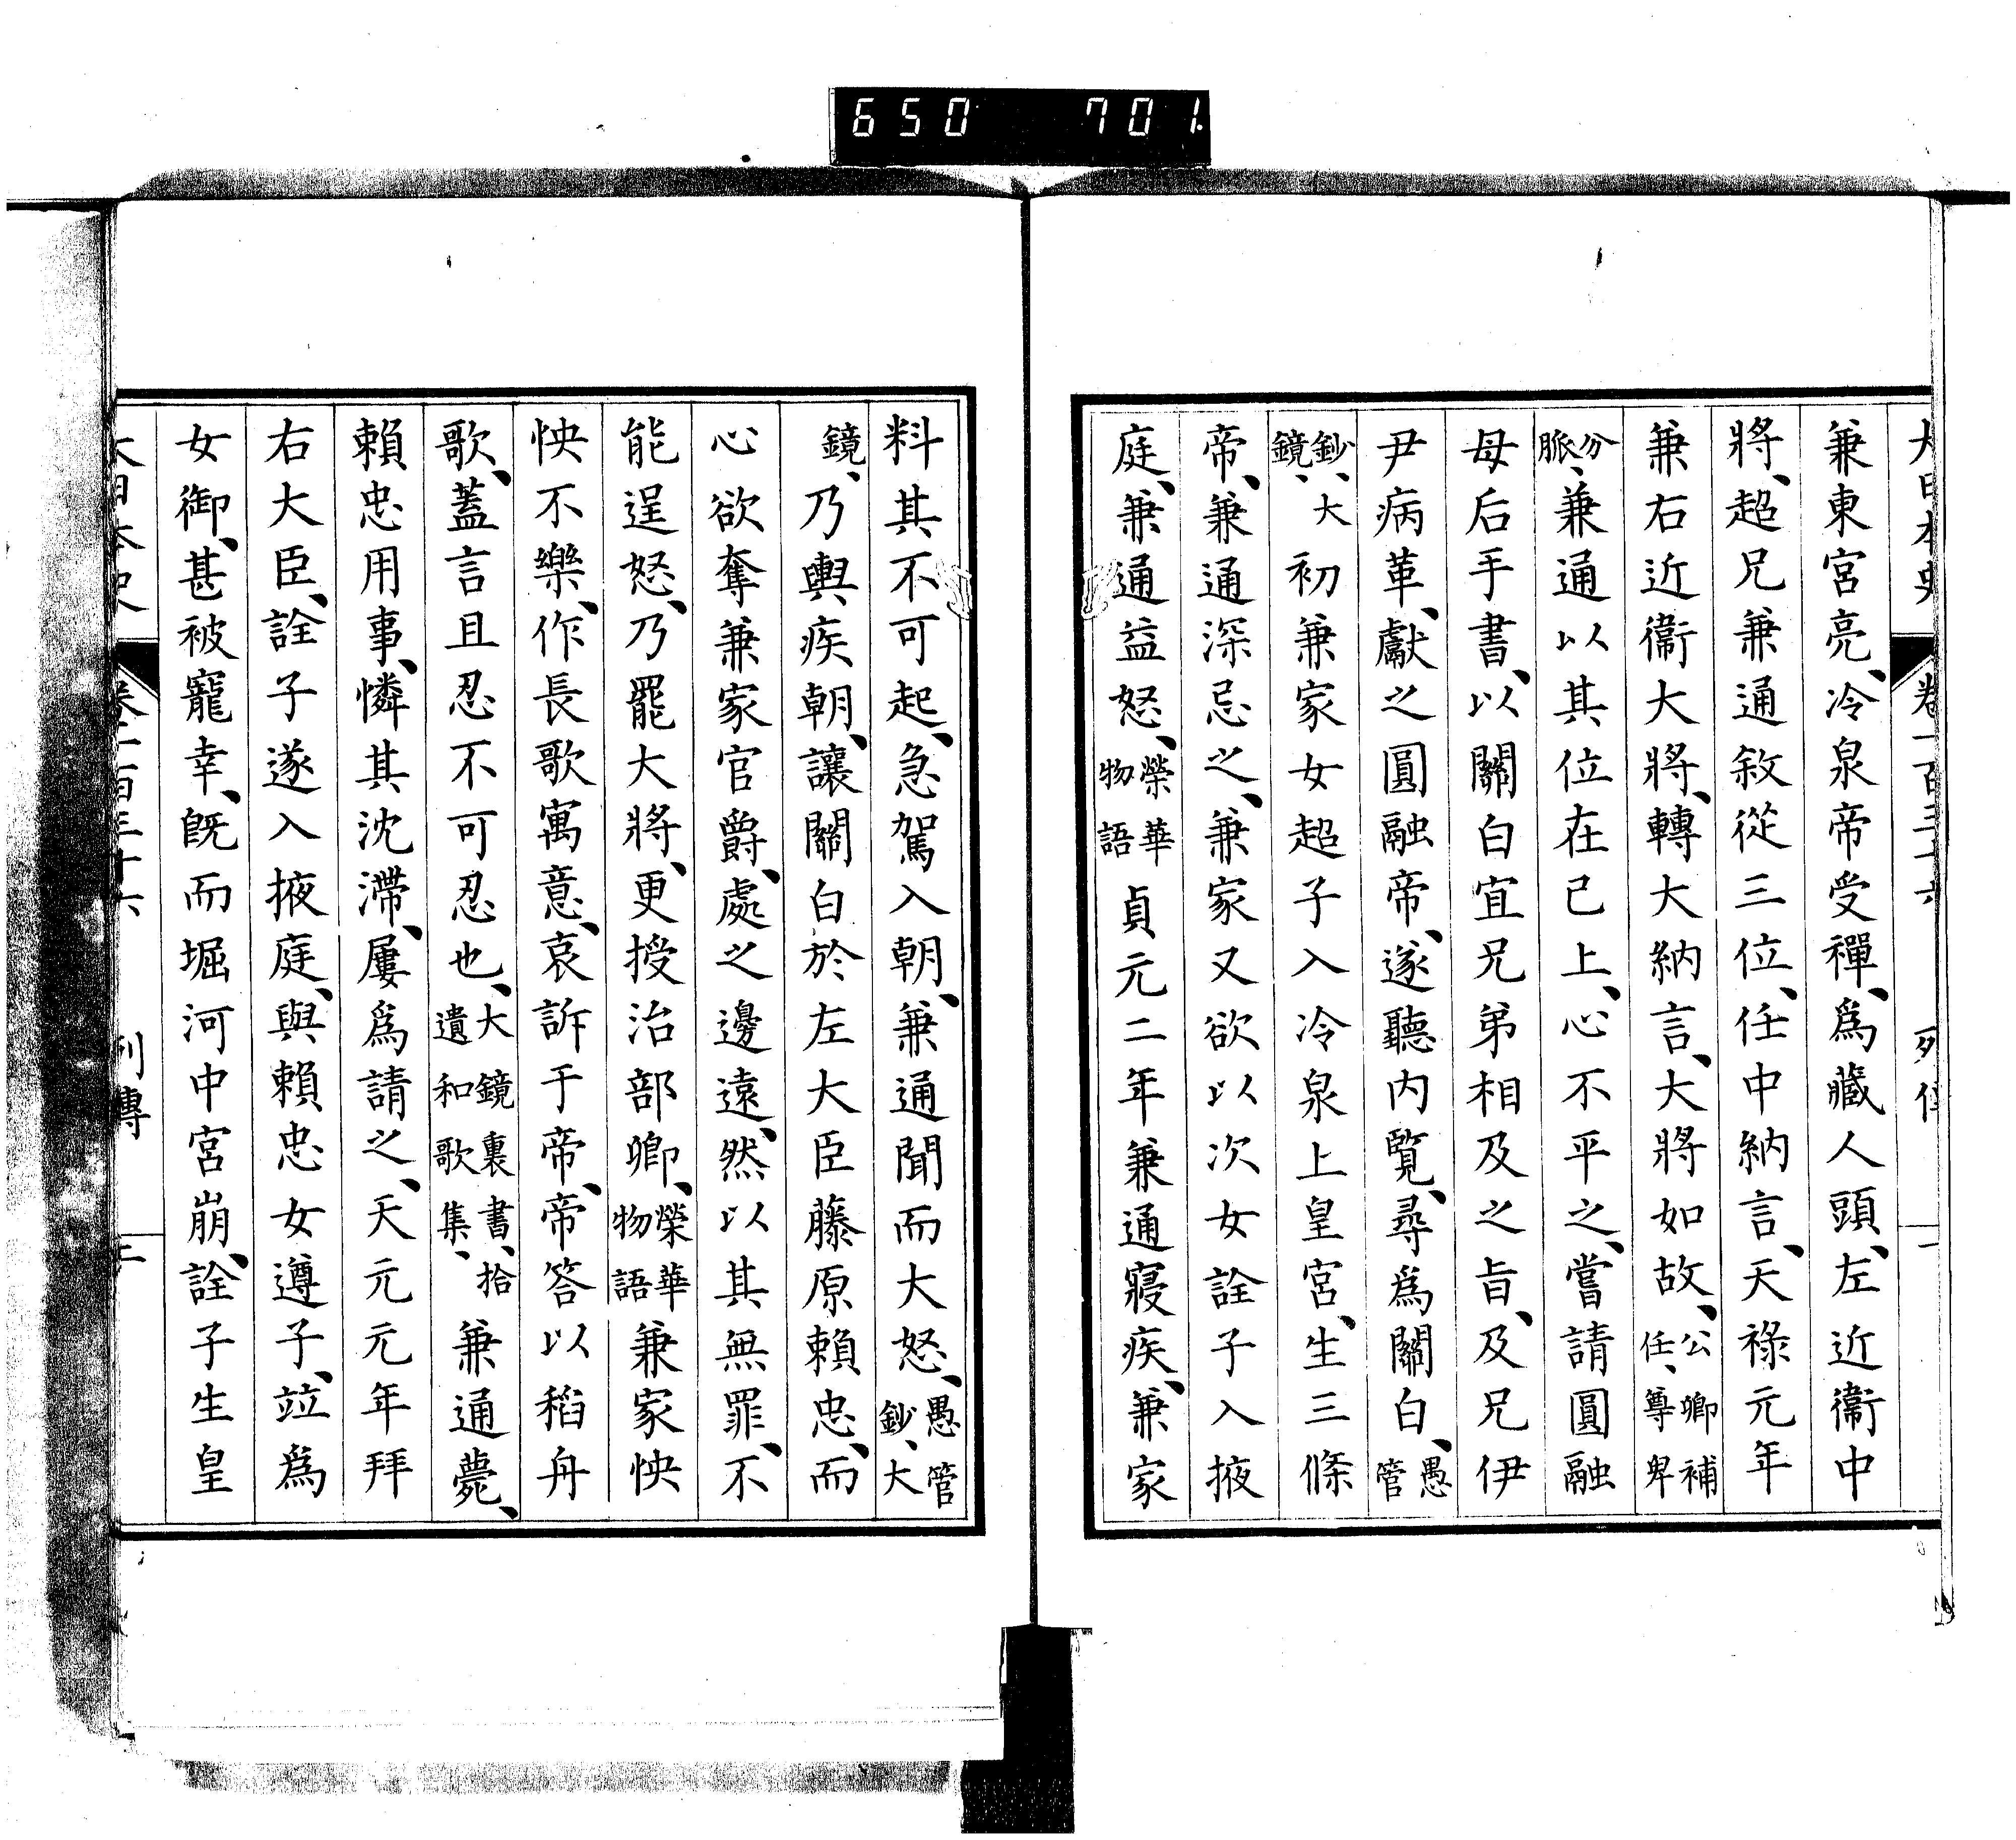 650 701
大日本史 卷一百三十六 列傳 一
兼東宮亮、冷泉帝受禪、爲藏人頭、左近衞中
將、超兄兼通敘從三位、任中納言、天祿元年
兼右近衞大將、轉大納言、大將如故、公卿補任、尊卑
分脈、兼通以其位在已上、心不平之、嘗請圓融
母后手書、以關白宜兄弟相及之旨、及兄伊
尹病革、獻之圓融帝、遂聽內覽、尋爲關白、愚管
鈔、大鏡、初兼家女超子入冷泉上皇宮、生三條
帝、兼通深忌之、兼家又欲以次女詮子入掖
庭、兼通益怒、榮華物語貞元二年兼通寢疾、兼家
料其不可起、急駕入朝、兼通聞而大怒、愚管鈔、大
鏡、乃輿疾朝、讓關白於左大臣藤原賴忠、而
心欲奪兼家官爵、處之邊遠、然以其無罪、不
能逞怒、乃罷大將、更授治部卿、榮華物語兼家怏
怏不樂、作長歌寓意、哀訴于帝、帝答以稻舟
歌、蓋言且忍不可忍也、大鏡裏書、拾遺和歌集、兼通薨、
賴忠用事、憐其沈滯、屢爲請之、天元元年拜
右大臣、詮子遂入掖庭、與賴忠女遵子、竝爲
女御、甚被寵幸、旣而堀河中宮崩、詮子生皇
大日本史 卷一百三十六 列傳 二